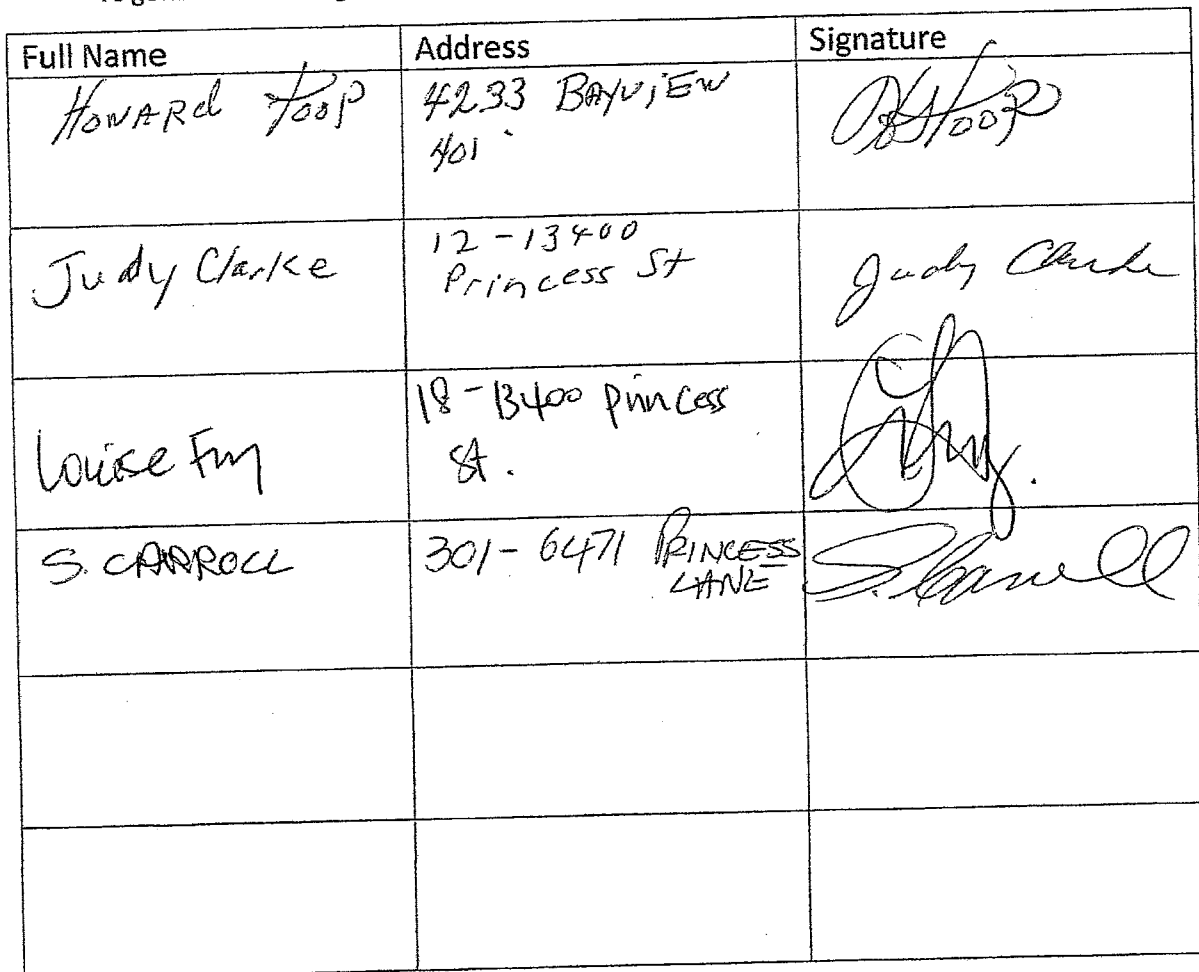 Full Name Address Signature
Howard Toop 4233 Bayview
401
Judy Clarke 12-13400
Princess St Judy Clarke
18-13400 princess
Louise St.
S. CARROLL 301-6471 PRINCESS
LANE S. Carroll